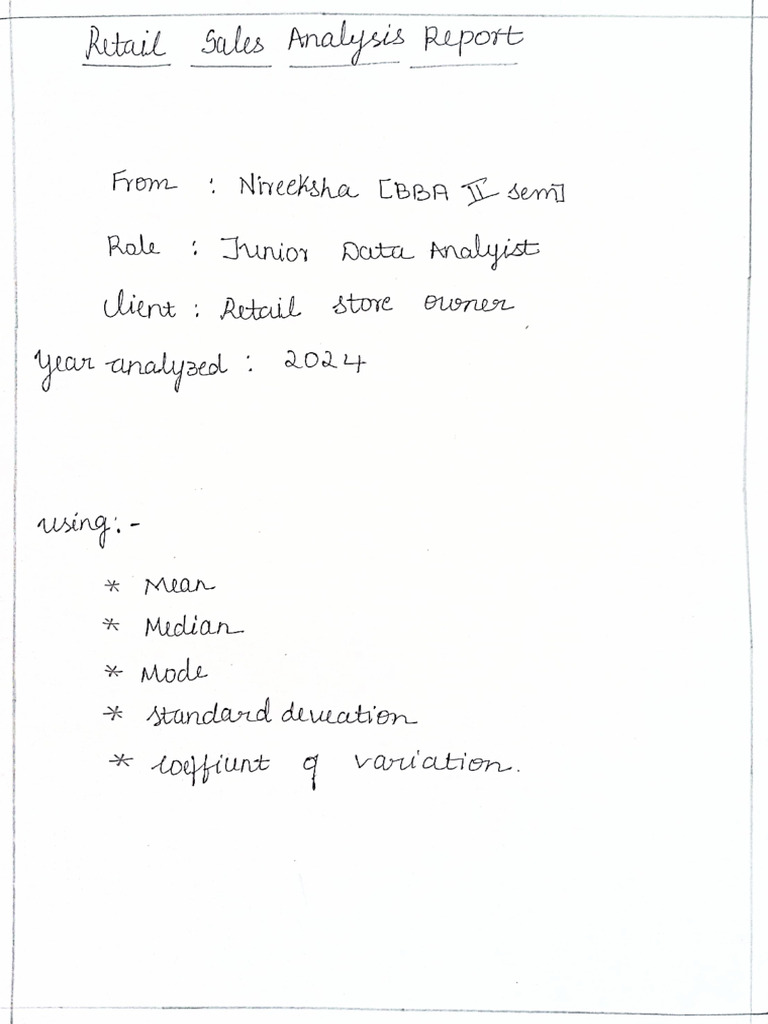 Retail Sales Analysis Report
From : Nireeksha [BBA II sem]
Role : Junior Data Analyist
Client : Retail store owner
Year analyzed : 2024
using:-
* Mean
* Median
* Mode
* standard deveation
* coeffiunt of variation.